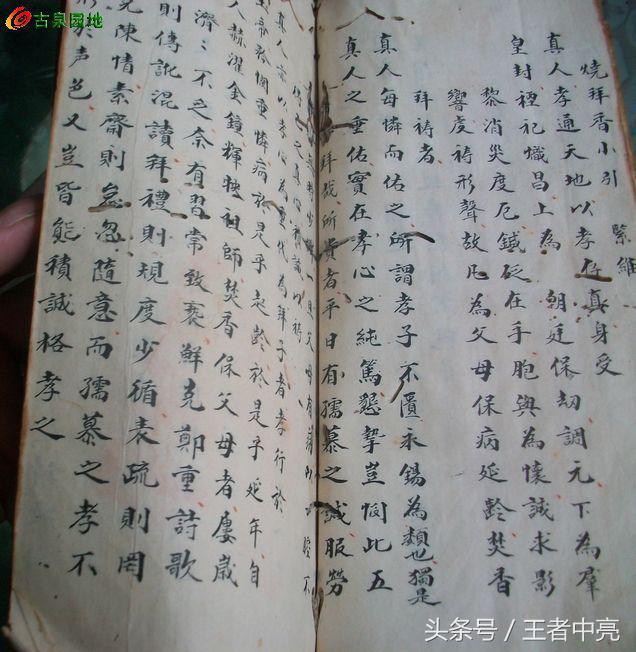 古泉园地
燒拜香小引
緊維
真人孝通天地以孝存真身受
皇封禋祀熾昌上為朝廷保劫調元下為羣
黎消災度厄鍼砭在手胞與為懷誠求影
響虔禱形聲故凡為父母保病延齡焚香
拜禱者
真人每憐而佑之所謂孝子不匱永錫為類也獨是
真人之垂佑實在孝心之純篤懇摯豈恫此五
拜哉所貴者平日有孺慕之誠服勞
真人以孝心為重代為拜子者孝行於
憐病於是乎起齡於是乎延年自
人赫濯金鐘輝映祖師焚香保父母者屢歲
濟濟不乏奈有習常致褻鮮克鄭重詩歌
則傳訛混讀拜禮則規度少循表疏則罔
陳情素齋則怠忽隨意而孺慕之孝不
於声色又豈皆能積誠格孝之
头条号／王者中亮